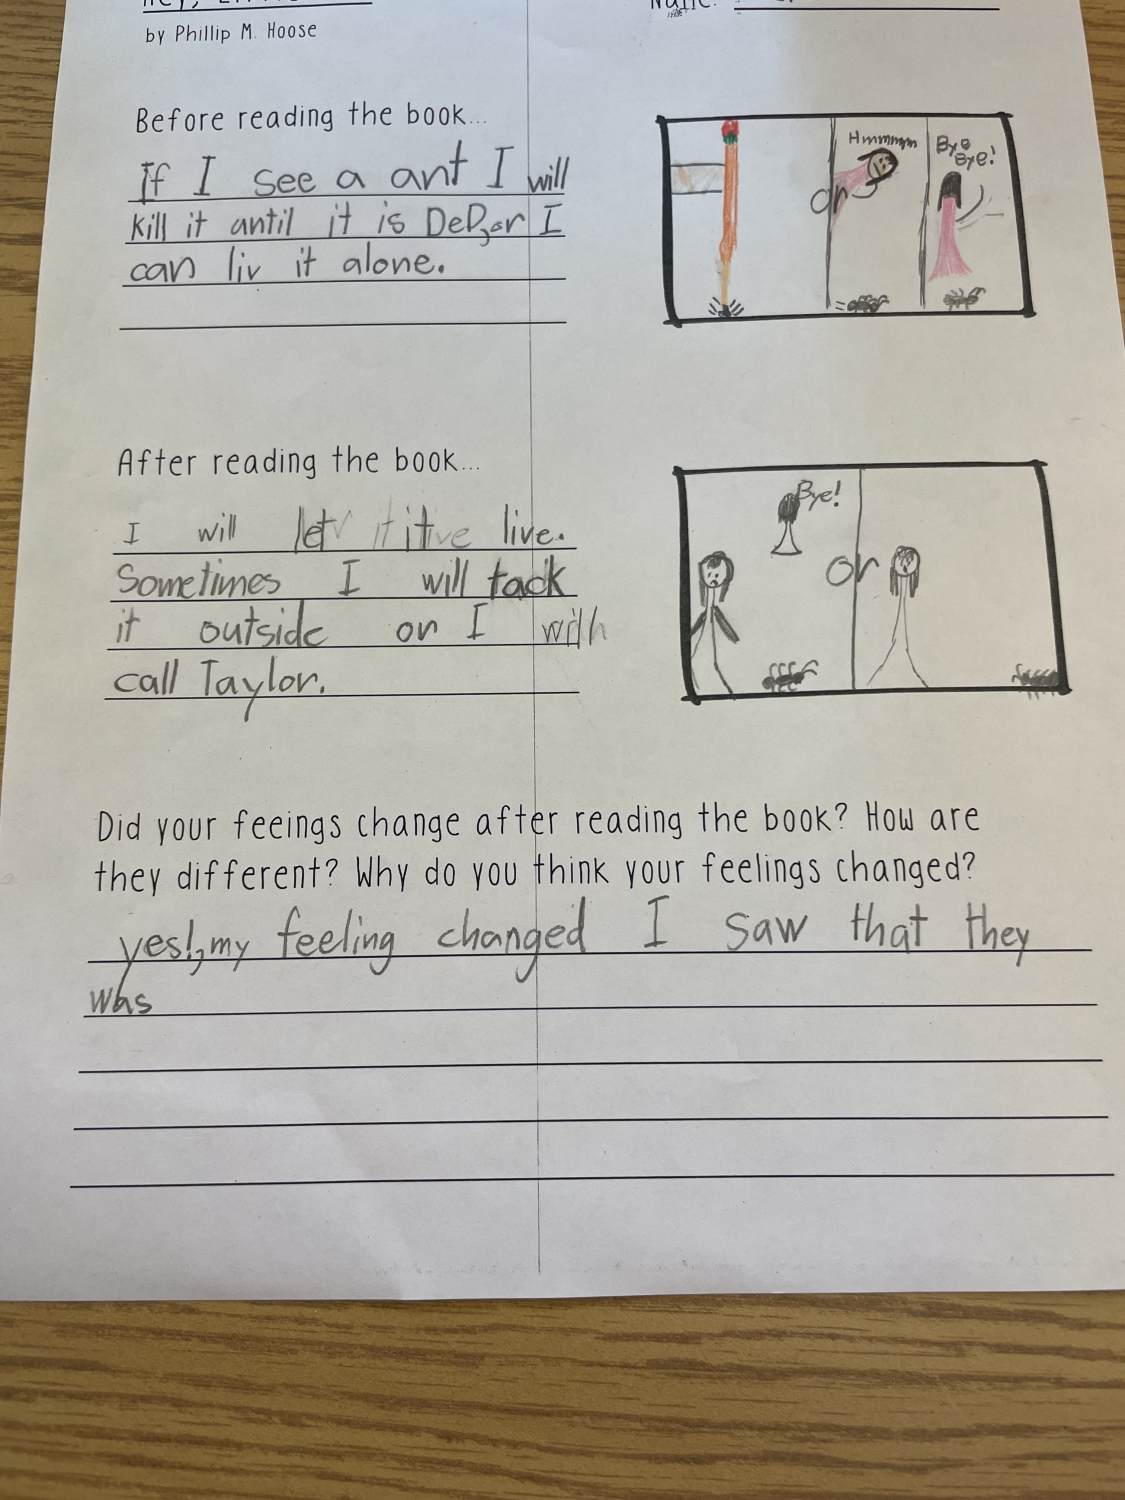 by Phillip M. Hoose
Before reading the book...
If I see a ant I will
kill it antil it is DeD, or I
can liv it alone.
or
Hmmmmm
Bye
Bye!
After reading the book...
I will let it live.
Sometimes I will tack
it outside or I will
call Taylor.
Bye!
or
Did your feeings change after reading the book? How are
they different? Why do you think your feelings changed?
yes!, my feeling changed I saw that they
was